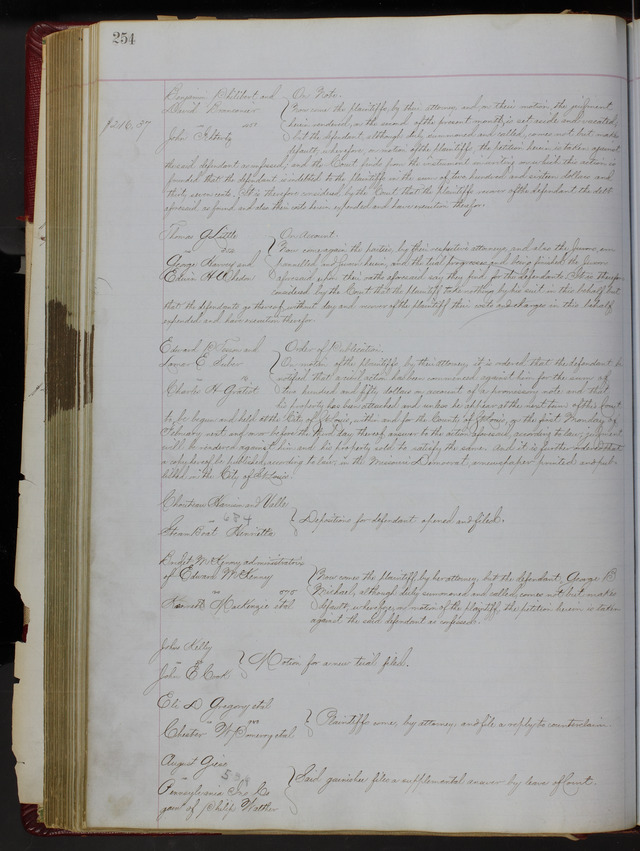 254
Benjamin Philibert and } On Note.
David
vs
John
$216,37
Now come the plaintiffs, by their attorney and, on their motion, the judgment
herein rendered, on the second of the present month, is set aside and vacated,
but the defendant, although duly summoned and called, comes not but makes
default; wherefore, on motion of the plaintiffs the petition herein is taken against
the said defendant as confessed; and the Court finds from the instrument in writing on which this action is
founded that the defendant is indebted to the plaintiffs in the sum of two hundred and sixteen dollars and
thirty seven cents. It is therefore considered by the Court that the plaintiffs recover of the defendant the debt
aforesaid so found and also their costs herein expended and have execution therefor.
Thomas J Little } On Account.
vs
George and
Edwin H
Now come again the parties, by their respective attorneys, and also the Jurors, em
panelled and sworn herein, and the trial progresses, and being finished the Jurors
aforesaid upon their oaths aforesaid say they find for the defendants. It is therefore
considered by the Court that the plaintiff take nothing by his suit in this behalf but
that the defendants go thereof without day and recover of the plaintiff their costs and charges in this behalf
expended and have execution therefor.
Edward and } Order of Publication.
E.
vs
Charles H Gratiot
On motion of the plaintiffs, by their attorney, it is ordered that the defendant be
notified that a civil action has been commenced against him for the sum of
two hundred and fifty dollars on account of a promissory note and that
his property has been attached and unless he appear at the next term of this Court
to be begun and held at the City of St Louis, within and for the County of St Louis, on the first Monday of
February next and on or before the third day thereof answer to the action aforesaid, according to law, judgment
will be rendered against him and his property sold to satisfy the same. And it is further ordered that
a copy hereof be published, according to law, in the Missouri Democrat, a newspaper printed and pub-
lished in the City of St Louis.
Chouteau Harrison and Valle
vs 654
Steam Boat Henrietta } Depositions for defendant opened and filed.
Bridget McKenny administratrix
of Edward McKenny
vs
Kenneth Mackenzie et al
Now comes the plaintiff, by her attorney, but the defendant, George B
Michael, although duly summoned and called, comes not but makes
default; wherefore, on motion of the plaintiff, the petition herein is taken
against the said defendant as confessed.
John Kelly
vs
John E Cook } Motion for a new trial filed.
Eli D Gregory et al
vs
Chester W et al } Plaintiffs come, by attorney, and file a reply to counterclaim.
August
vs
Pennsylvania Ins Co
garn of Philip } Said garnishee files a supplemental answer by leave of Court.